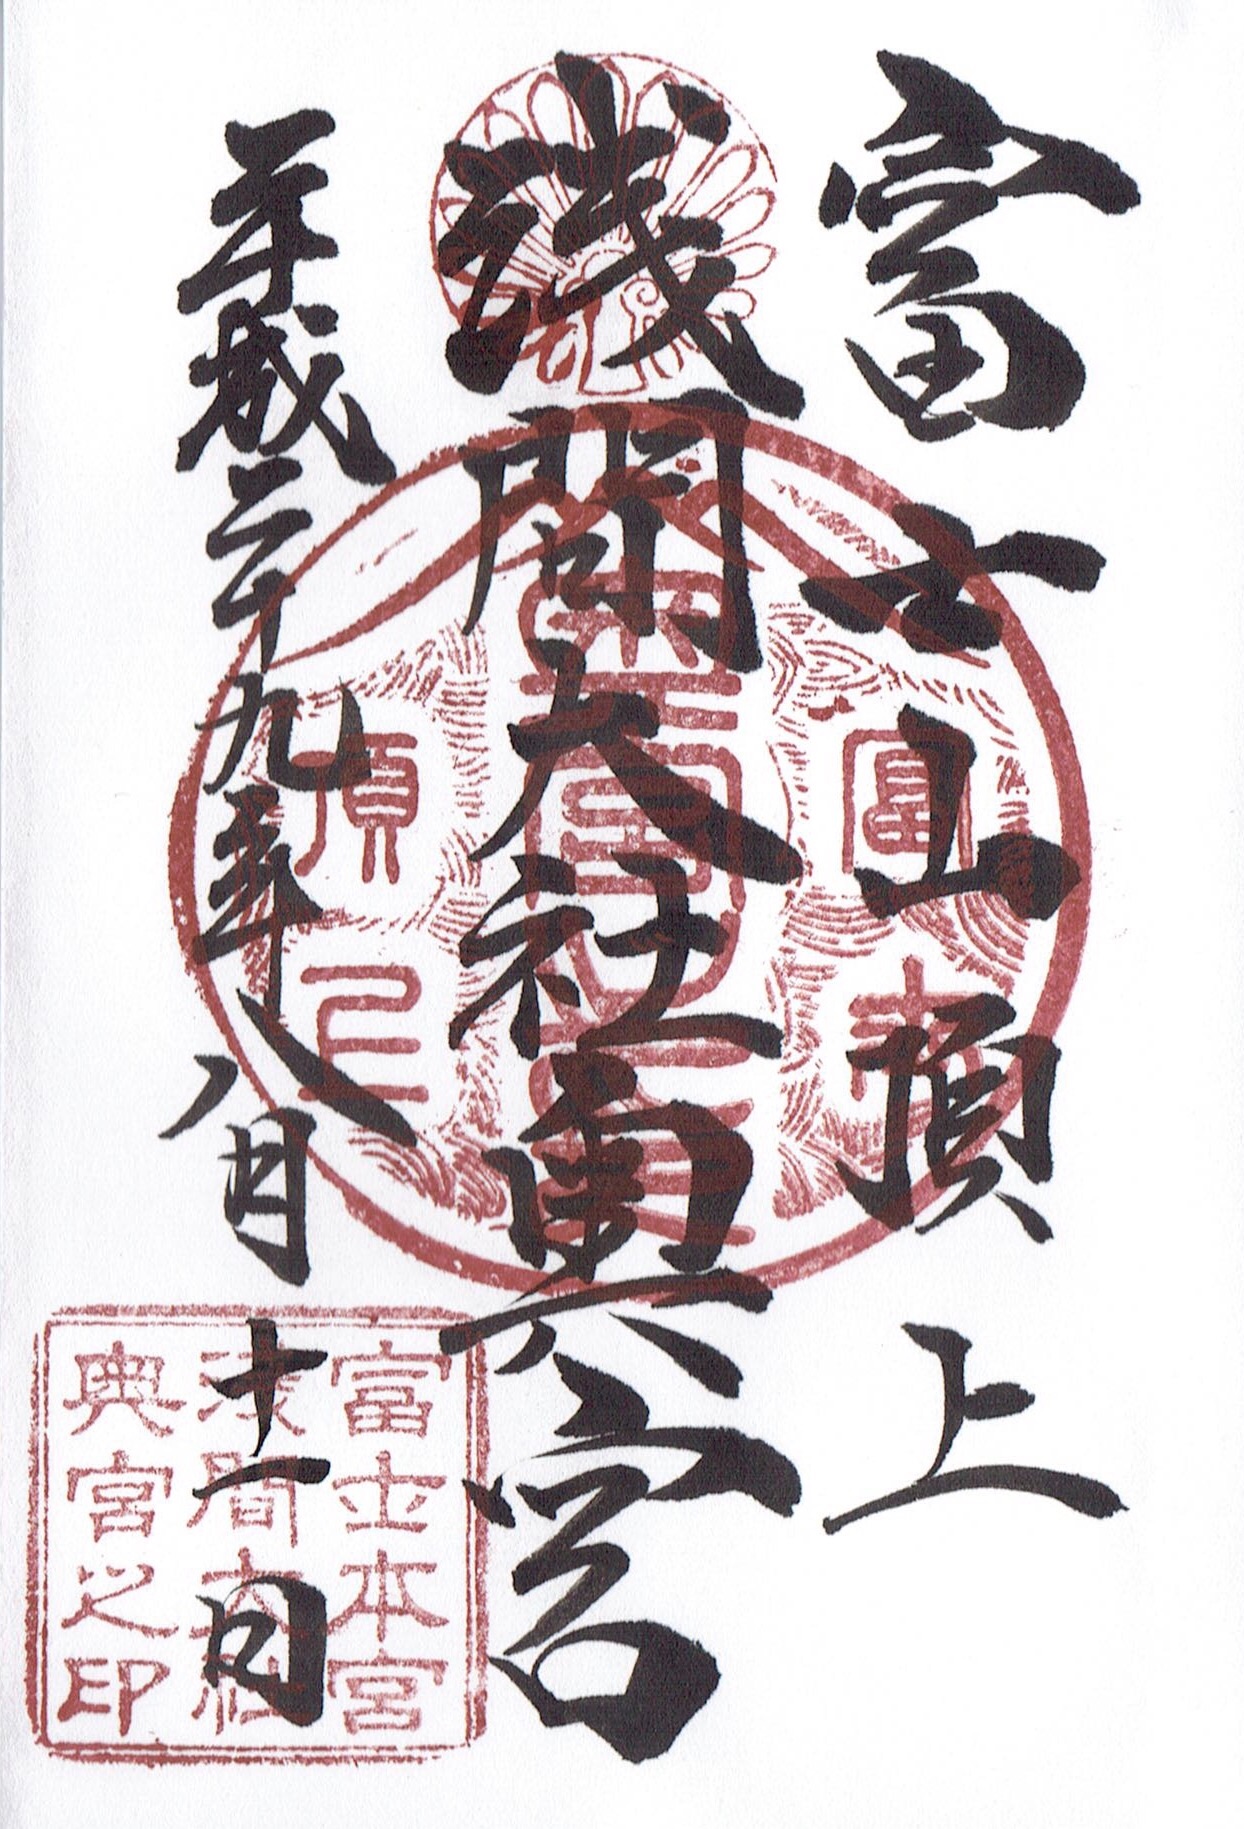 富士山頂上
浅間大社奥宮
平成二十九年八月十一日
頂上
富士本宮
浅間大社
奥宮之印